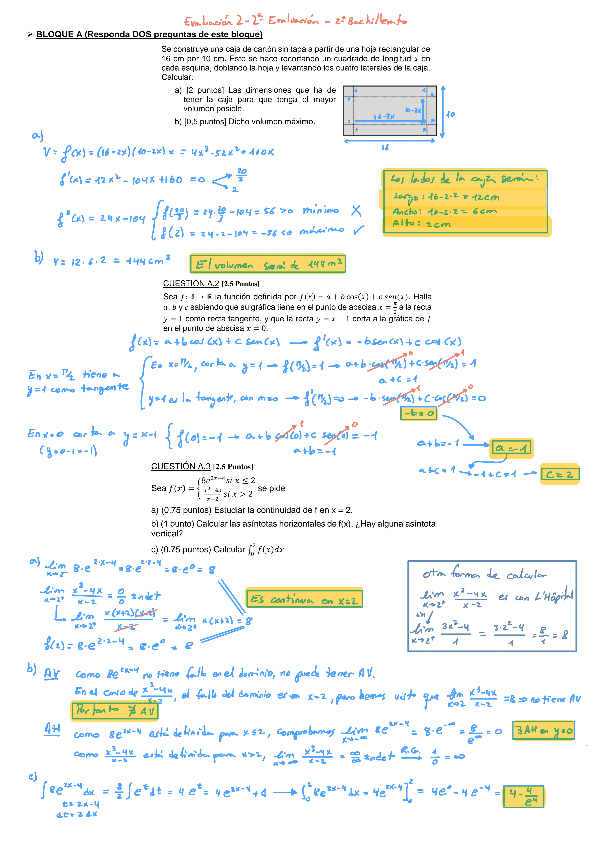 Evaluación 2 - 2ª Evaluación - 2º Bachillerato
➤ BLOQUE A (Responda DOS preguntas de este bloque)
Se construye una caja de cartón sin tapa a partir de una hoja rectangular de
16 cm por 10 cm. Esto se hace recortando un cuadrado de longitud x en
cada esquina, doblando la hoja y levantando los cuatro laterales de la caja.
Calcular:
a) [2 puntos] Las dimensiones que ha de
tener la caja para que tenga el mayor
volumen posible.
b) [0,5 puntos] Dicho volumen máximo.
10-2x
16-2x
10
16
a)
V = f(x) = (16-2x)(10-2x)x = 4x³-52x²+160x
f'(x) = 12x²-104x+160 = 0 < 20/3
2
f''(x) = 24x-104 { f(20/3) = 24·20/3-104 = 56 > 0 mínimo X
f(2) = 24·2-104 = -56 < 0 máximo ✓
Los lados de la caja serán:
Largo: 16-2·2 = 12cm
Ancho: 10-2·2 = 6cm
Alto: 2cm
b) V = 12·6·2 = 144cm³
El volumen será de 144m³
CUESTIÓN A.2 [2.5 Puntos]
Sea f: ℝ → ℝ la función definida por f(x) = a + b cos(x) + c sen(x). Halla
a, b y c sabiendo que su gráfica tiene en el punto de abscisa x = π/2 a la recta
y = 1 como recta tangente, y que la recta y = x − 1 corta a la gráfica de f
en el punto de abscisa x = 0.
f(x) = a+b cos(x)+c sen(x) → f'(x) = -b sen(x)+c cos(x)
En x=π/2 tiene a
y=1 como tangente
En x=π/2, corta a y=1 → f(π/2)=1 → a+b·cos(π/2)⁰+c·sen(π/2)¹=1
a+c=1
y=1 es la tangente, con m=0 → f'(π/2)=0 → -b·sen(π/2)¹+c·cos(π/2)⁰=0
-b=0
En x=0 corta a y=x-1 { f(0)=-1 → a+b cos(0)¹+c sen(0)⁰=-1
(y=0-1=-1)
a+b=-1
a+b=-1 → a=-1
a+c=1 → -1+c=1 → c=2
CUESTIÓN A.3 [2.5 Puntos]
Sea f(x) = { 8e^(2x-4) si x ≤ 2
(x³-4x)/(x-2) si x > 2
se pide
a) (0.75 puntos) Estudiar la continuidad de f en x = 2.
b) (1 punto) Calcular las asíntotas horizontales de f(x). ¿Hay alguna asíntota
vertical?
c) (0.75 puntos) Calcular ∫₀² f(x)dx
a) lim x→2⁻ 8·e^(2x-4) = 8·e^(2·2-4) = 8·e⁰ = 8
lim x→2⁺ (x³-4x)/(x-2) = 0/0 indet
↳ lim x→2⁺ x(x+2)(x-2)/(x-2) = lim x→2⁺ x(x+2) = 8
f(2) = 8·e^(2·2-4) = 8·e⁰ = 8
Es continua en x=2
Otra forma de calcular
lim x→2⁺ (x³-4x)/(x-2) es con L'Hôpital
lim x→2⁺ (3x²-4)/1 = (3·2²-4)/1 = 8/1 = 8
b) AV como 8e^(2x-4) no tiene fallo en el dominio, no puede tener AV.
En el caso de (x³-4x)/(x-2), el fallo del dominio es en x=2, pero hemos visto que lim x→2 (x³-4x)/(x-2) = 8 ⇒ no tiene AV
Por tanto ∄ AV
AH como 8e^(2x-4) está definida para x≤2, comprobamos lim x→-∞ 8e^(2x-4) = 8·e^(-∞) = 8/e^∞ = 0 ∃ AH en y=0
como (x³-4x)/(x-2) está definida para x>2, lim x→∞ (x³-4x)/(x-2) = ∞/∞ indet R.G. → 1/0 = ∞
c)
∫8e^(2x-4)dx = 8/2 ∫e^t dt = 4e^t = 4e^(2x-4)+C → ∫₀² 8e^(2x-4)dx = 4e^(2x-4)]₀² = 4e⁰-4e⁻⁴ = 4-4/e⁴
t=2x-4
dt=2dx